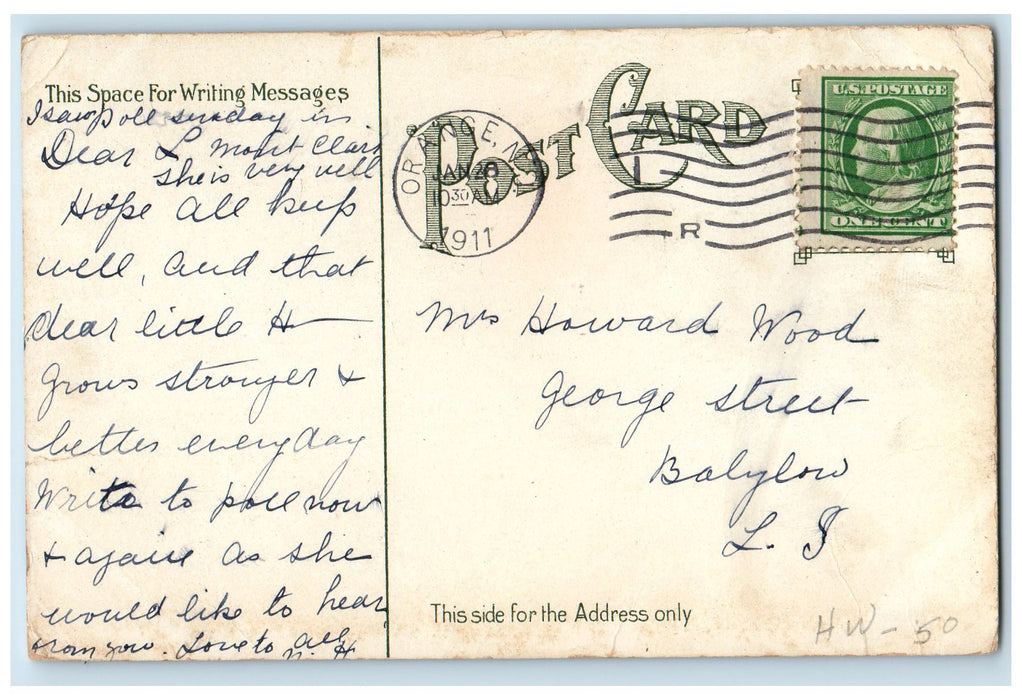 This Space For Writing Messages
I saw Poll sunday in
Dear L Mont Clair
she is very well
Hope all keep
well, and that
dear little H—
grows stronger &
better everyday
Write to poll now
& again as she
would like to hear
from you. Love to all
H
POST CARD
ORANGE, N.
JAN 28
1030 AM
1911
1
R
U.S. POSTAGE
ONE CENT
Mrs Howard Wood
George Street
Babylow
L. I
This side for the Address only
HW - 50